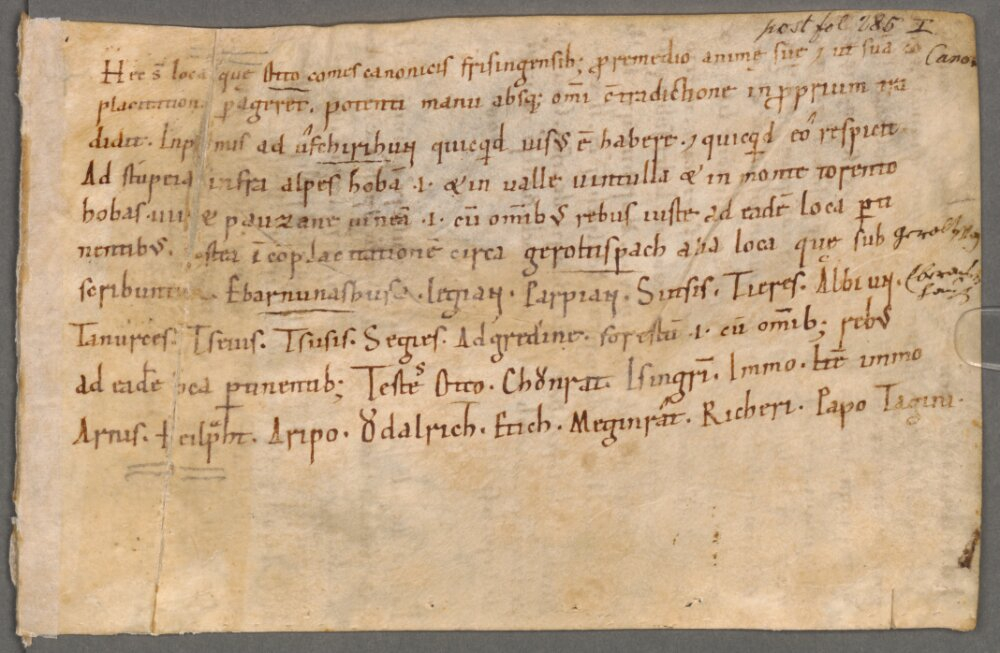 post fol 285 I
Hec s̄ loca que Otto comes canonicis frisingensib; ꝓ remedio animę suę ⁊ ut sua cō
Canon
placitation pageret. potenti manu absq; om̄i c̄tradictione in ꝓprium tra
didit. Inp mis ad ufchirihun quicqd uisꝰ ē habere ⁊ quicqd eo respicit.
Ad stupeia infra alpes hobā .i. & in ualle uintulla & in monte torento
hobas .iii. & pauzane uineā .i. cū om̄ibꝰ rebus iuste ad eadē loca pti
nentibꝰ. stea ī cōplacitationē circa gerotispach alia loca quę sub
scribuntur. Ebarnunashusa. Legian. Parpian. Sinsis. Tieres. Albiun.
Tanurces. Tseuis. Tsusis. Segies. Ad gredine forestū .i. cū om̄ib; rebꝰ
ad eadē loca ptinentib; Testes Otto. Chȣnrat. Isingrī. Immo. Itē immo
Arnis. Heilpht. Aripo. Ȣdalrich. Etich. Meginrat. Richeri. Papo Tagini.